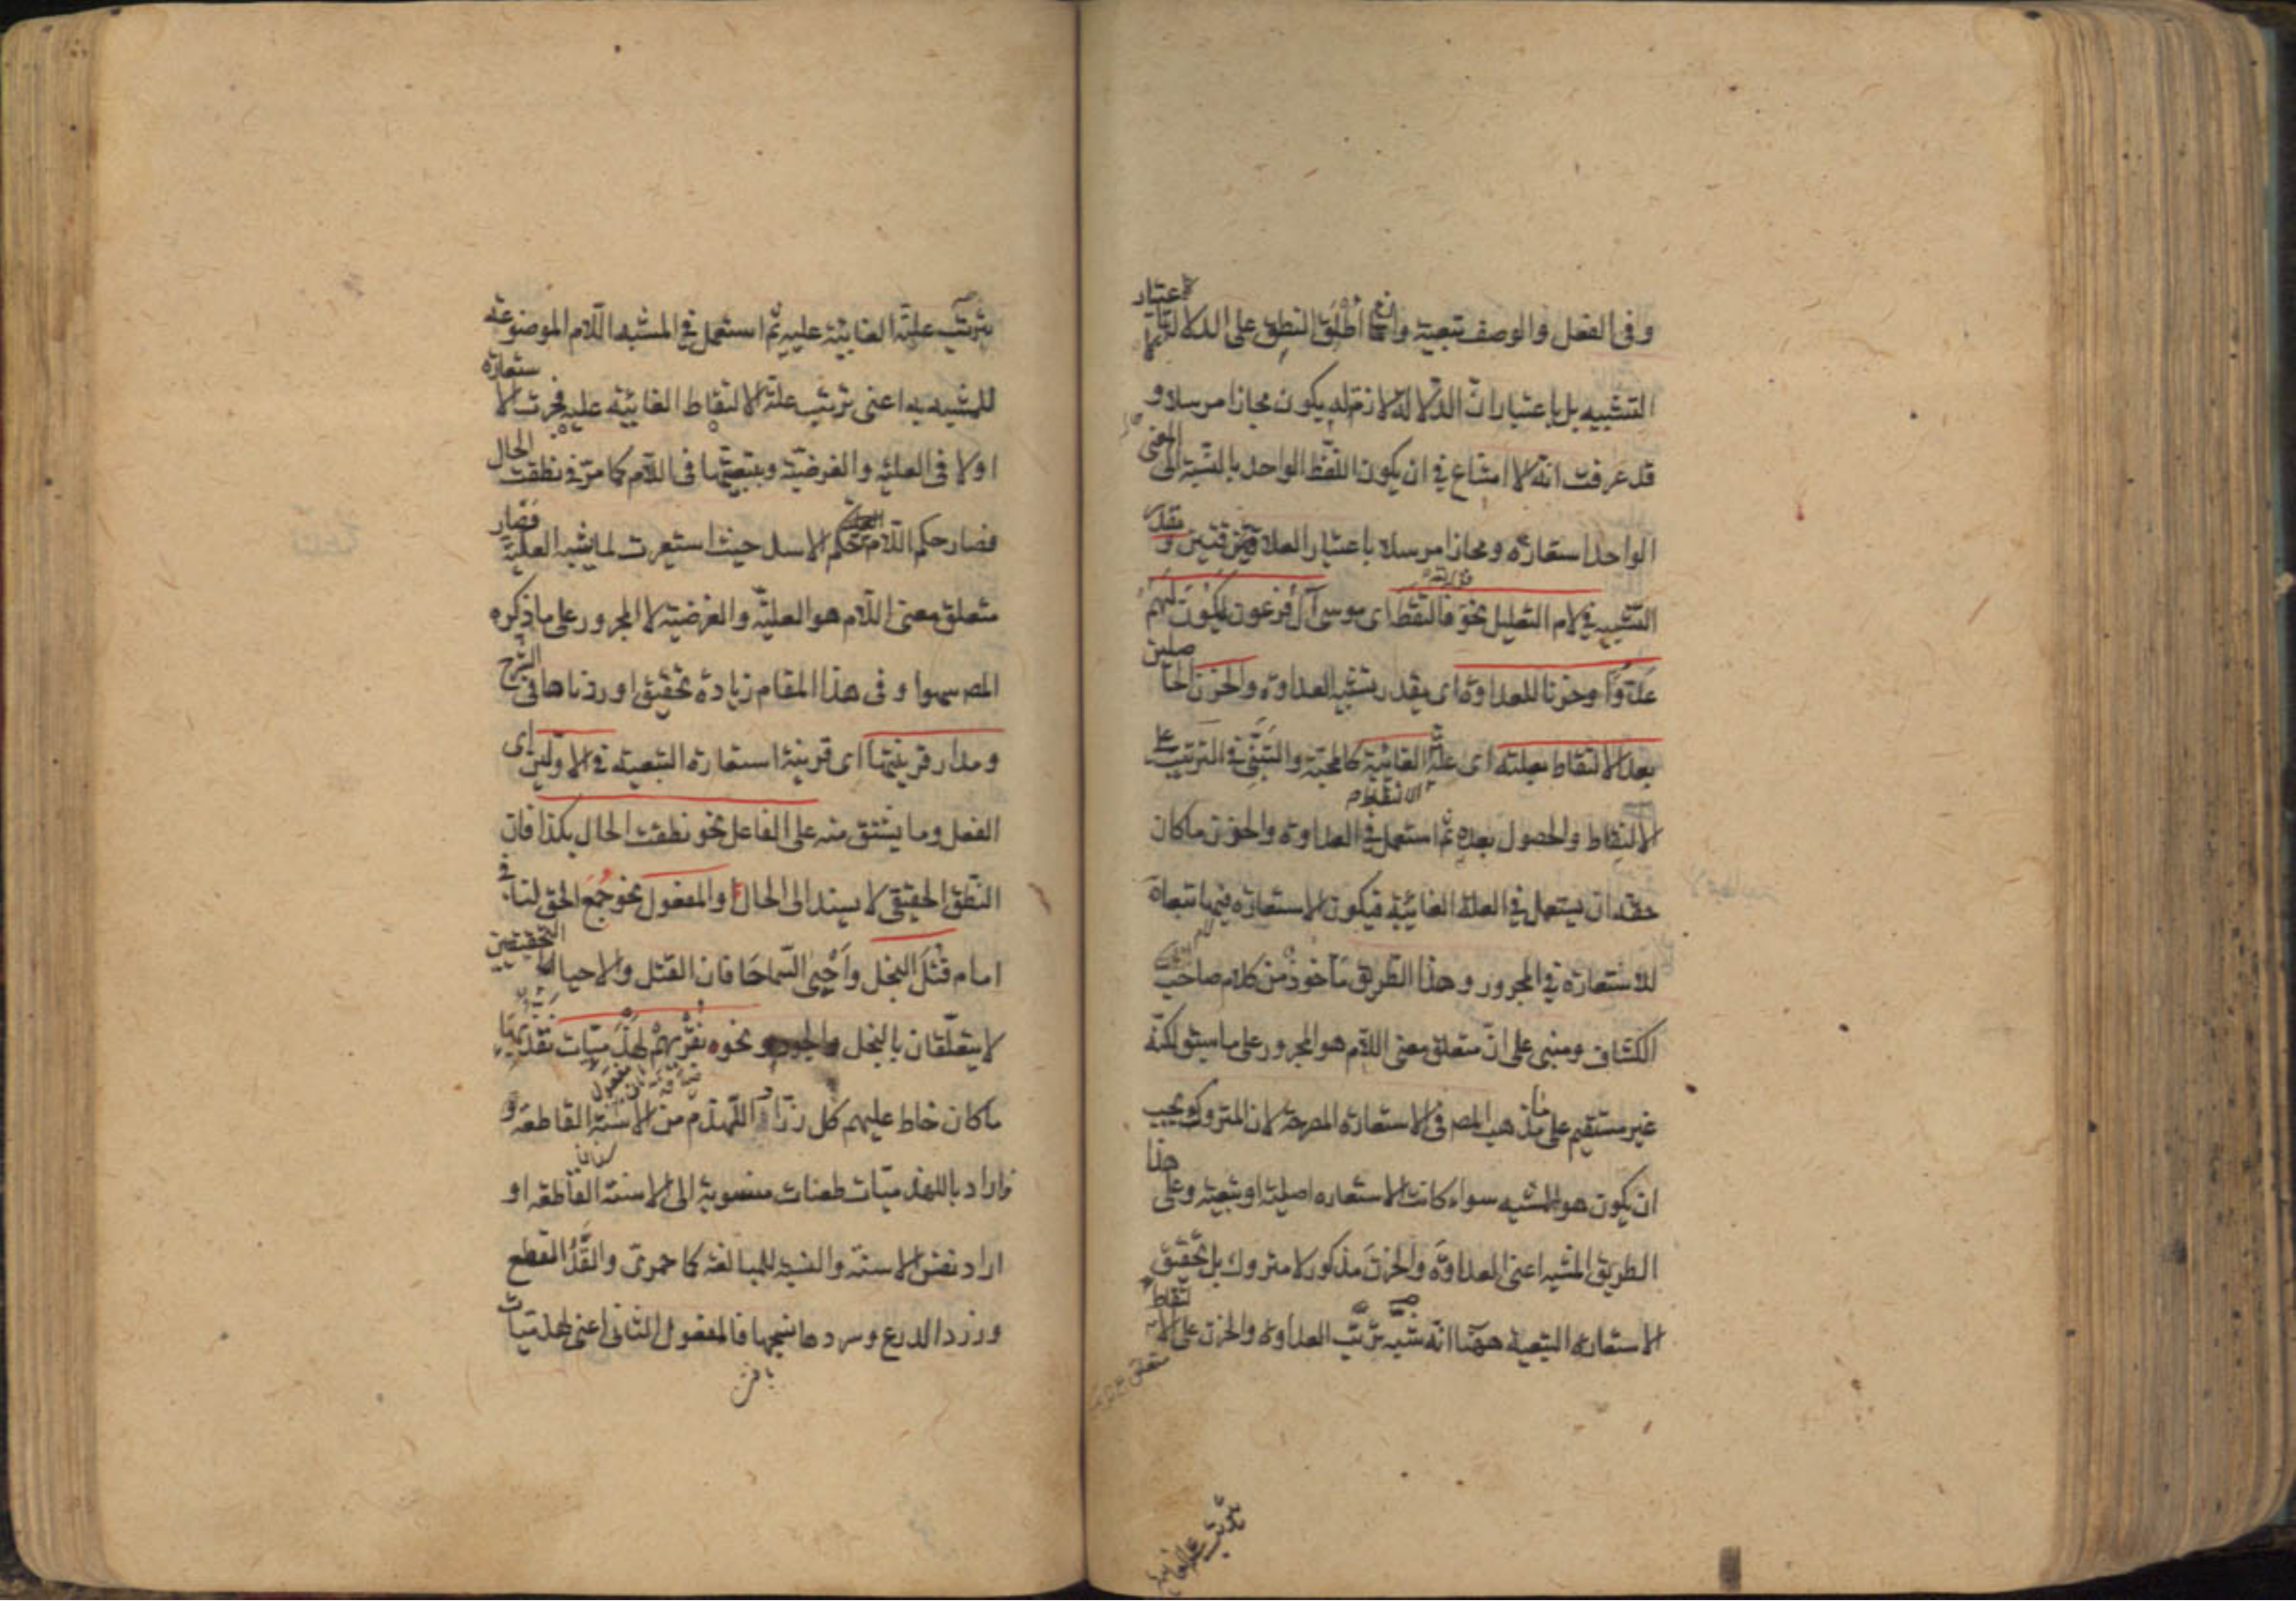 وفى الفعل والوصف تبعية وان اطلق النطق على الدلالة لا باعتبار
التشبيه بل باعتبار ان الدلالة لازم له يكون مجازا مرسلا و
قد عرفت انه لا امتناع في ان يكون اللفظ الواحد بالنسبة الى المعنى
الواحد استعارة ومجازا مرسلا باعتبار العلاقتين ويقدر
التشبيه في لام التعليل نحو فالتقطه اى موسى آل فرعون ليكون لهم
عدوا وحزنا للعداوة اى يقدر تشبيه العداوة والحزن الحاصلين
بعد الالتقاط بعلته اى علة الالتقاط الغائية كالمحبة والتبنى في الترتب على
الالتقاط والحصول بعده ثم استعمل في العداوة والحزن ما كان
حقه ان يستعمل في العلة الغائية فيكون الاستعارة فيها تبعا
للاستعارة في المجرور وهذا الطريق مأخوذ من كلام صاحب
الكشاف ومبنى على ان متعلق معنى اللام هو المجرور على ما سبق لكنه
غير مستقيم على مذهب المص فى الاستعارة المصرحة لان المتروك يجب
ان يكون هو المشبه سواء كانت الاستعاره اصلية او تبعية وعلى هذا
الطريق المشبه اعنى العداوة والحزن مذكور لا متروك بل تحقيق
الاستعارة التبعية ههنا انه شبه ترتب العداوة والحزن على الالتقاط
بترتب علته الغائية عليه ثم استعمل في المشبه اللام الموضوعة
للمشبه به اعنى ترتب علة الالتقاط الغائية عليه فجرت الاستعارة
اولا فى العلية والغرضية وبتبعيتها فى اللام كما مر في نطقت الحال
فصار حكم اللام حكم الاسد حيث استعيرت لما يشبه العلية فصار
متعلق معنى اللام هو العلية والغرضية لا المجرور على ما ذكره
المص سهوا وفى هذا المقام زيادة تحقيق اوردناها في الشرح
ومدار قرينتها اى قرينة استعارة التبعية في الاولين اى
الفعل وما يشتق منه على الفاعل نحو نطقت الحال بكذا فان
النطق الحقيقى لا يسند الى الحال والمفعول نحو جمع الحق لنا فى
امام قتل البخل واحيى السماحا فان القتل والاحياء الحقيقيين
لا يتعلقان بالبخل والجود ونحو نقريهم لهذميات نقد بها
ما كان خاط عليهم كل زراد اللهذم من الاسنة القاطعة و
فاراد باللهذميات طعنات منسوبة الى الاسنة القاطعة او
اراد نفس الاسنة والنسبة للمبالغة كاحمرى والقد القطع
وزرد الدرع وسردها نسجها فالمفعول الثانى اعنى لهذميات